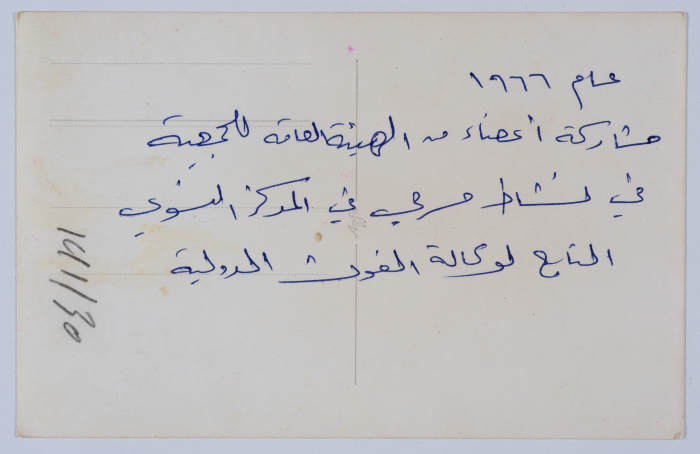 عام ١٩٦٦
مشاركة أعضاء من الهيئة العامة للجمعية
في نشاط مسرحي في المركز النسوي
التابع لوكالة الغوث الدولية